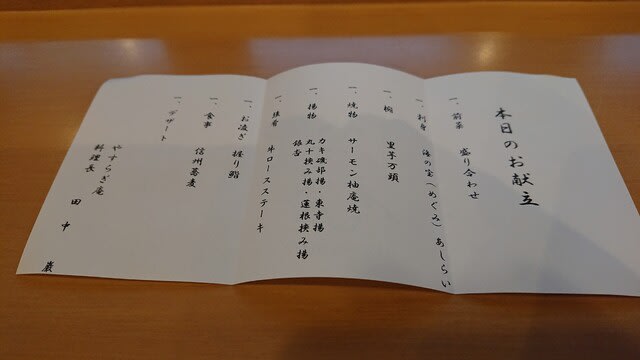 本日のお献立
一、前菜 盛り合わせ
一、刺身 海の宝(めぐみ)あしらい
一、椀 里芋万頭
一、焼物 サーモン柚庵焼
一、揚物 カキ磯部揚・東寺揚
丸十挟み揚・蓮根挟み揚
銀杏
一、強肴 牛ロースステーキ
一、お凌ぎ 握り鮨
一、食事 信州蕎麦
一、デザート
やすらぎ庵
料理長 田中 巌